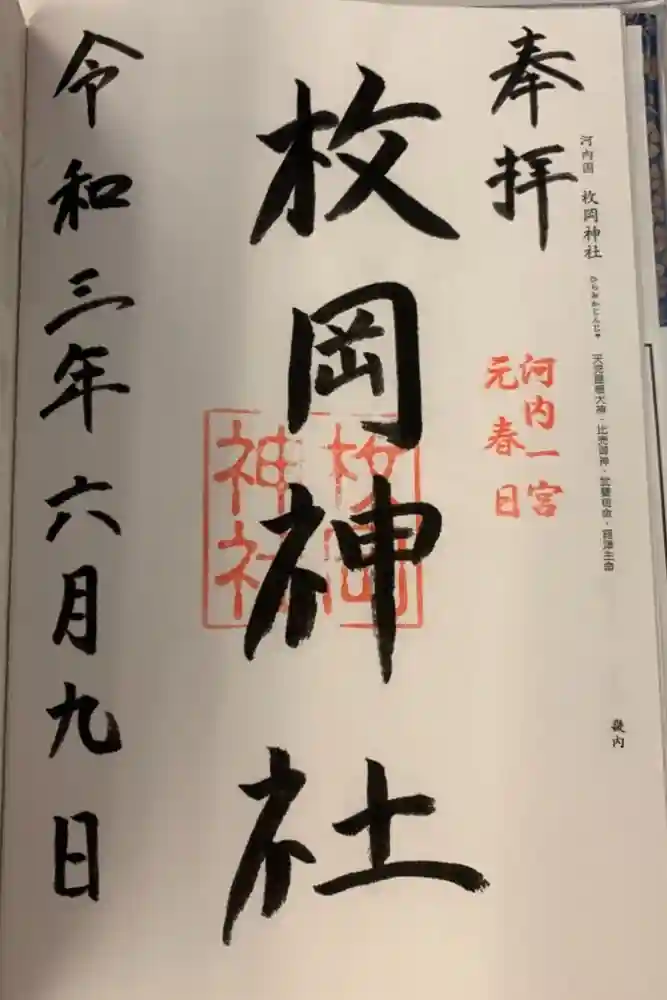 河内国 枚岡神社 ひらおかじんじゃ 天児屋根大神・比売御神・武甕槌命・経津主命
畿内
奉拝
河内一宮
元春日
枚岡神社
枚岡
神社
令和三年六月九日